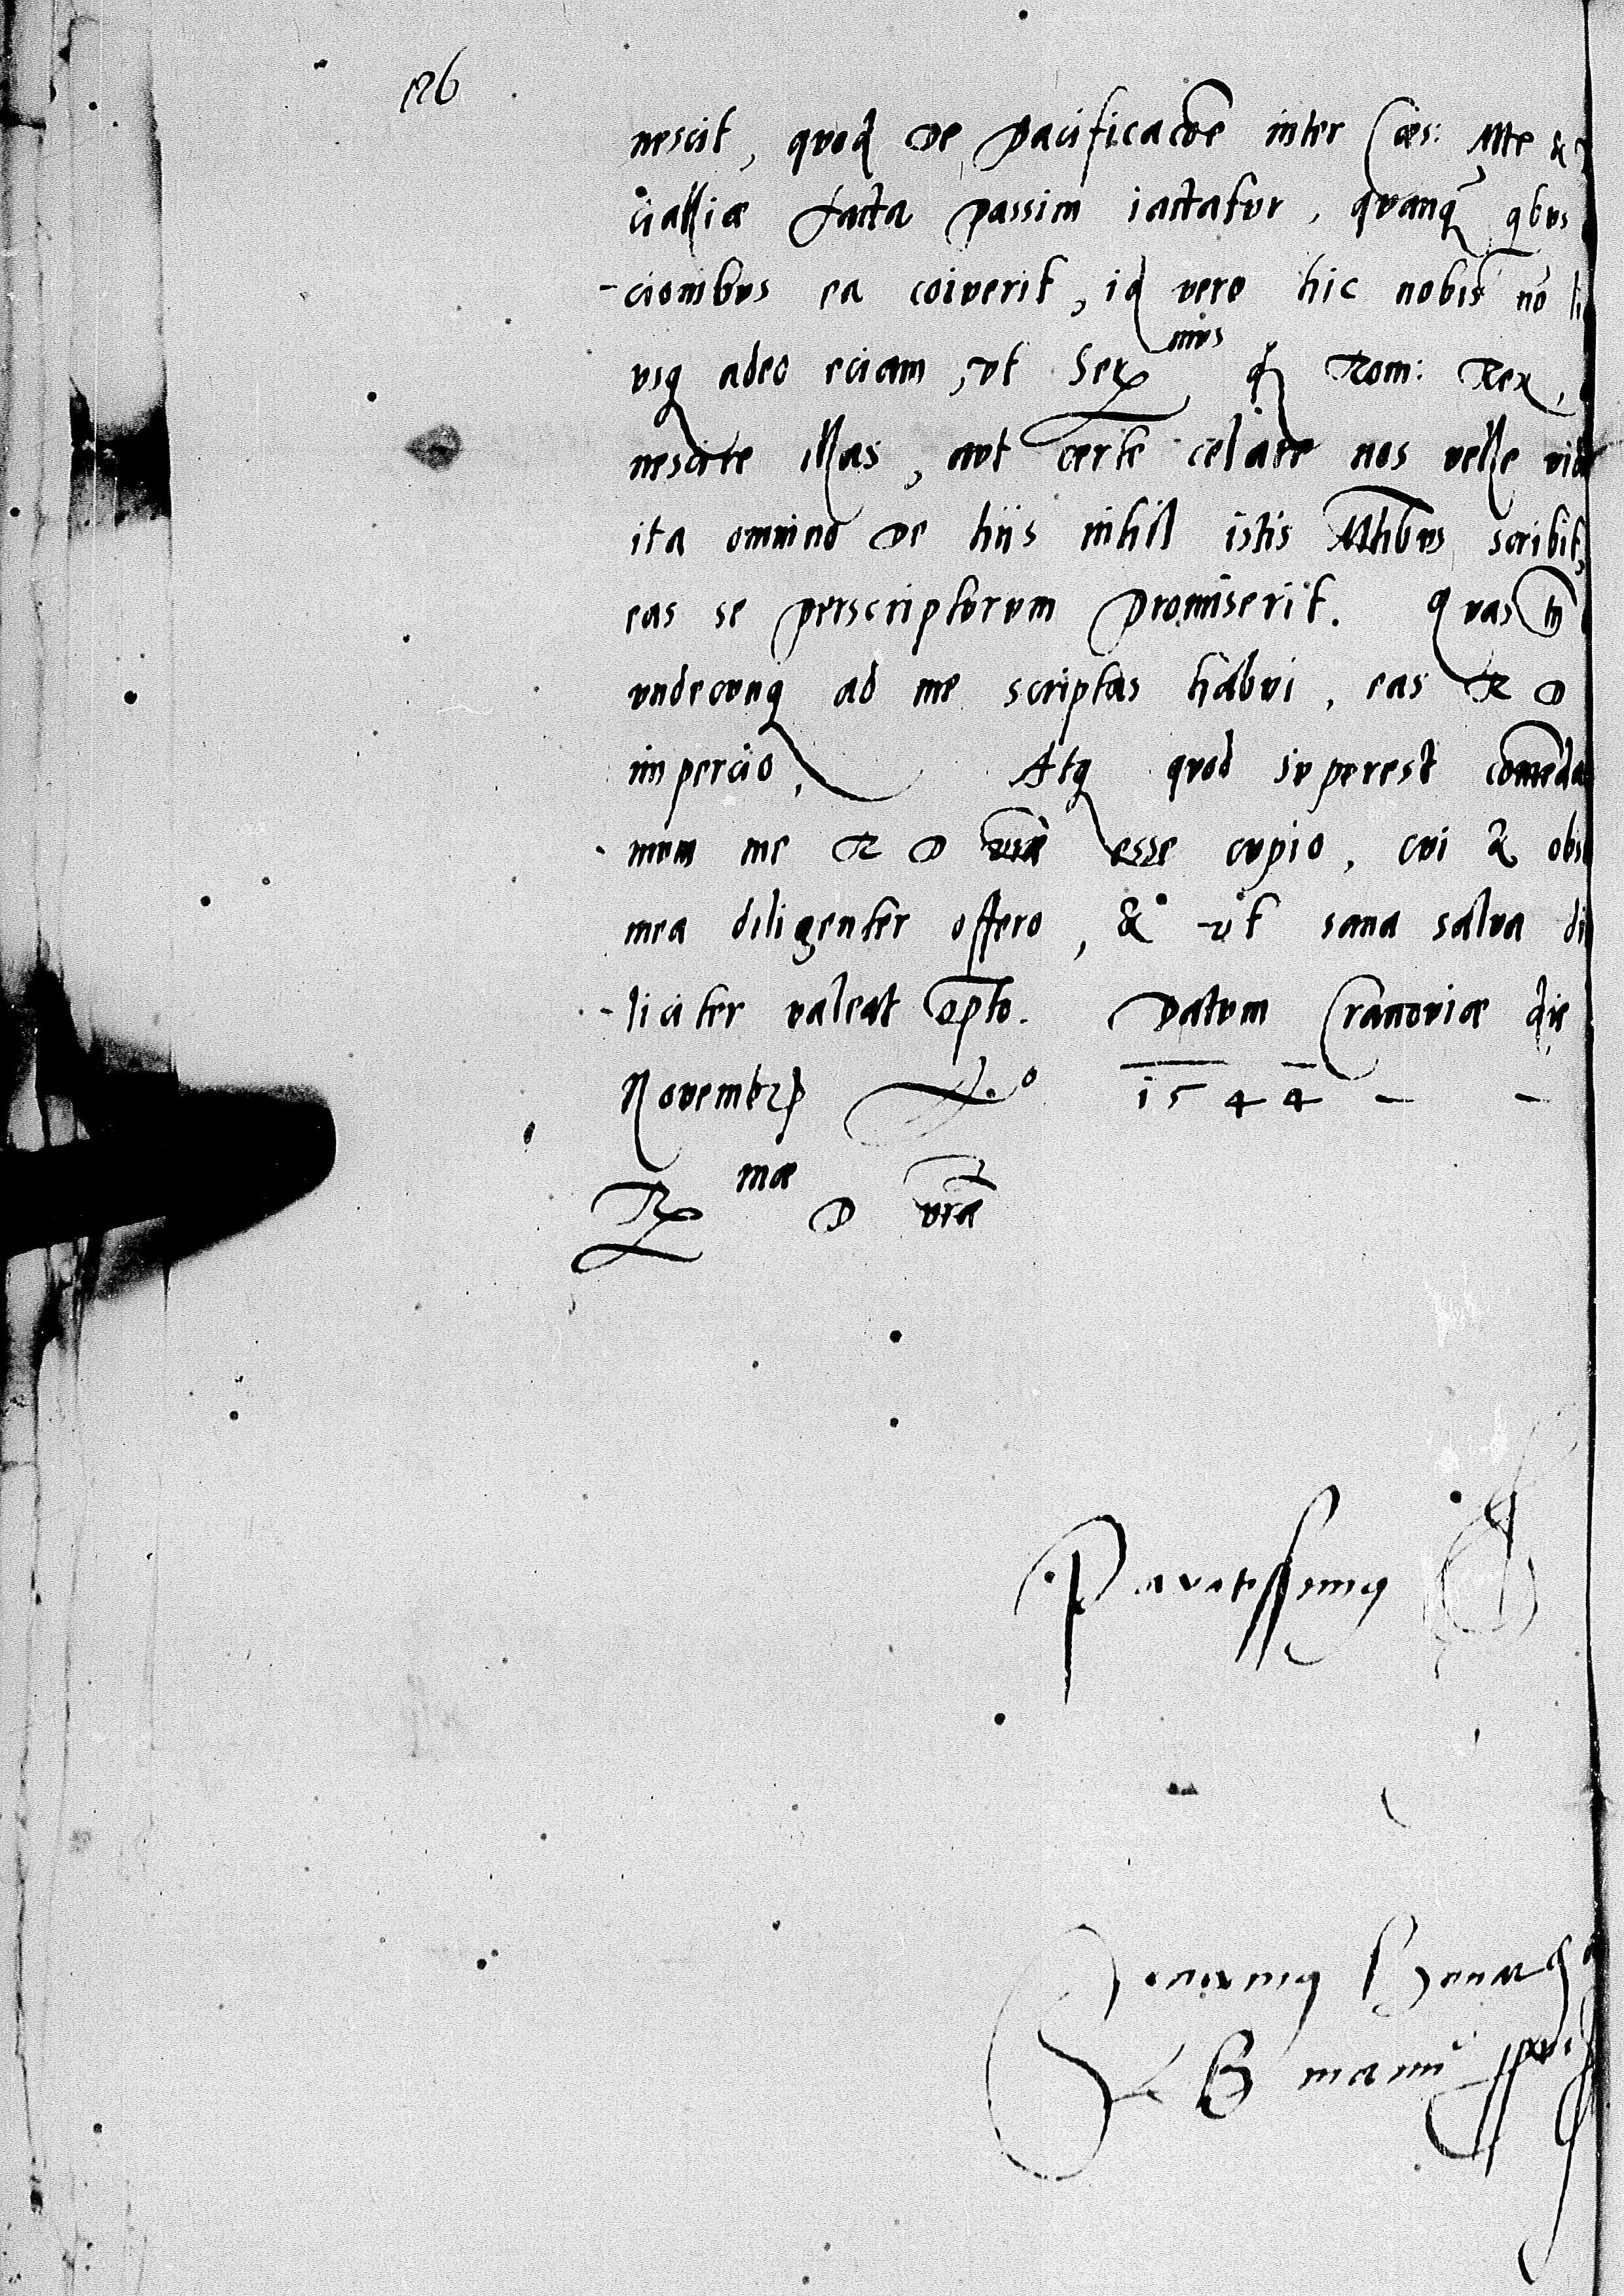 126
nescit, quod de pacificacõe inter Caes: Mte &
cialliæ facta passim iactatur, quanq̃ qbus
-cionibus ea coiuerit, id vero hic nobis nõ li
usq adeo eciam, ut Ser mus q Rom: Rex,
nescire illas, aut certe celare nos uelle vid
ita omnino de hiis nihil istis Mtibus scribit,
eas se perscripturum promiserit. Quas
undecunq ad me scriptas habui, eas R D
impercio, Atq quod superest comẽda
mum me R D vrae esse cupio, cui & obs
mea diligenter offero, & ut sana salua di
-liciter valeat opto. Datum Cracoviæ die
Novembr 1544 - -
R mæ D vrã
Paratissimq
Joannes Bonar
manu